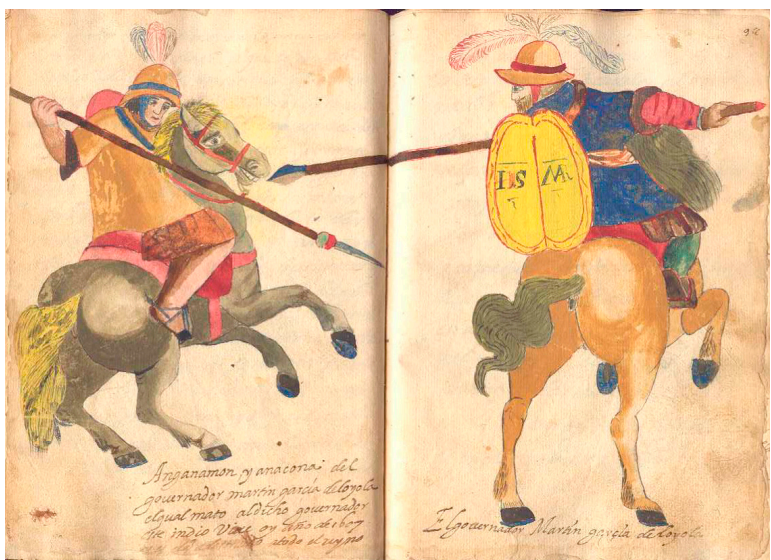 94
IHS MA
Anganamon yanacona del
governador martin garcia de loyola
elqual mato aldicho governador
este indio vive oy año de 1607
atodo el reyno
El governador Martin garcia de loyola